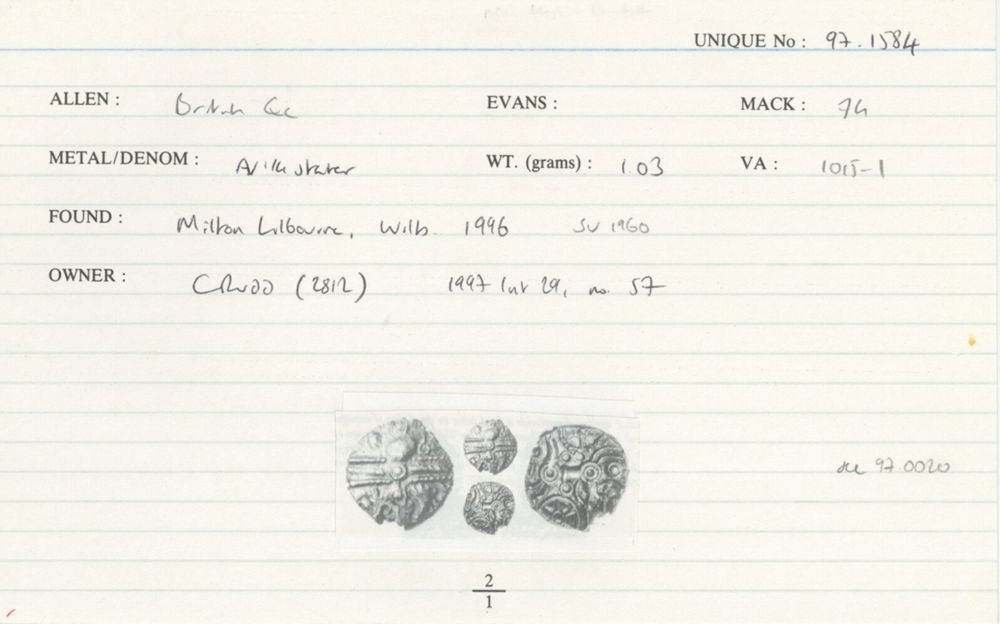 UNIQUE No : 97.1584
ALLEN : British Qc EVANS : MACK : 74
METAL/DENOM : AV 1/4 stater WT. (grams) : 1.03 VA : 1015-1
FOUND : Milton Lilbourne, Wilts. 1996 SU 1960
OWNER : CRUDD (2812) 1997 list 29, no. 57
see 97.0020
2
1